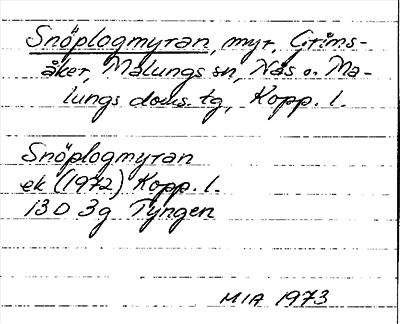 Snöplogmyran, myr, Gríms-
åker, Malungs sn, Nås o. Ma-
lungs doms. tg, Kopp. l.
Snöplogmyran
ek (1972) Kopp. l.
13 D 3g Tyngen
MIA 1973